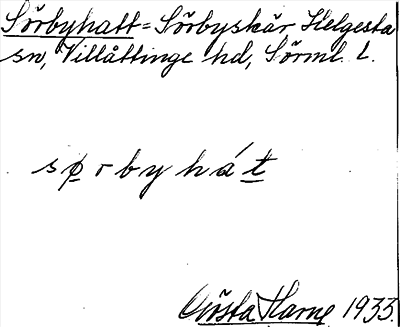 Sörbyhatt = Sörbyskär Helgesta
sn, Villåttinge hd, Sörml. l.
sørbyhát
Gösta Harne 1933.